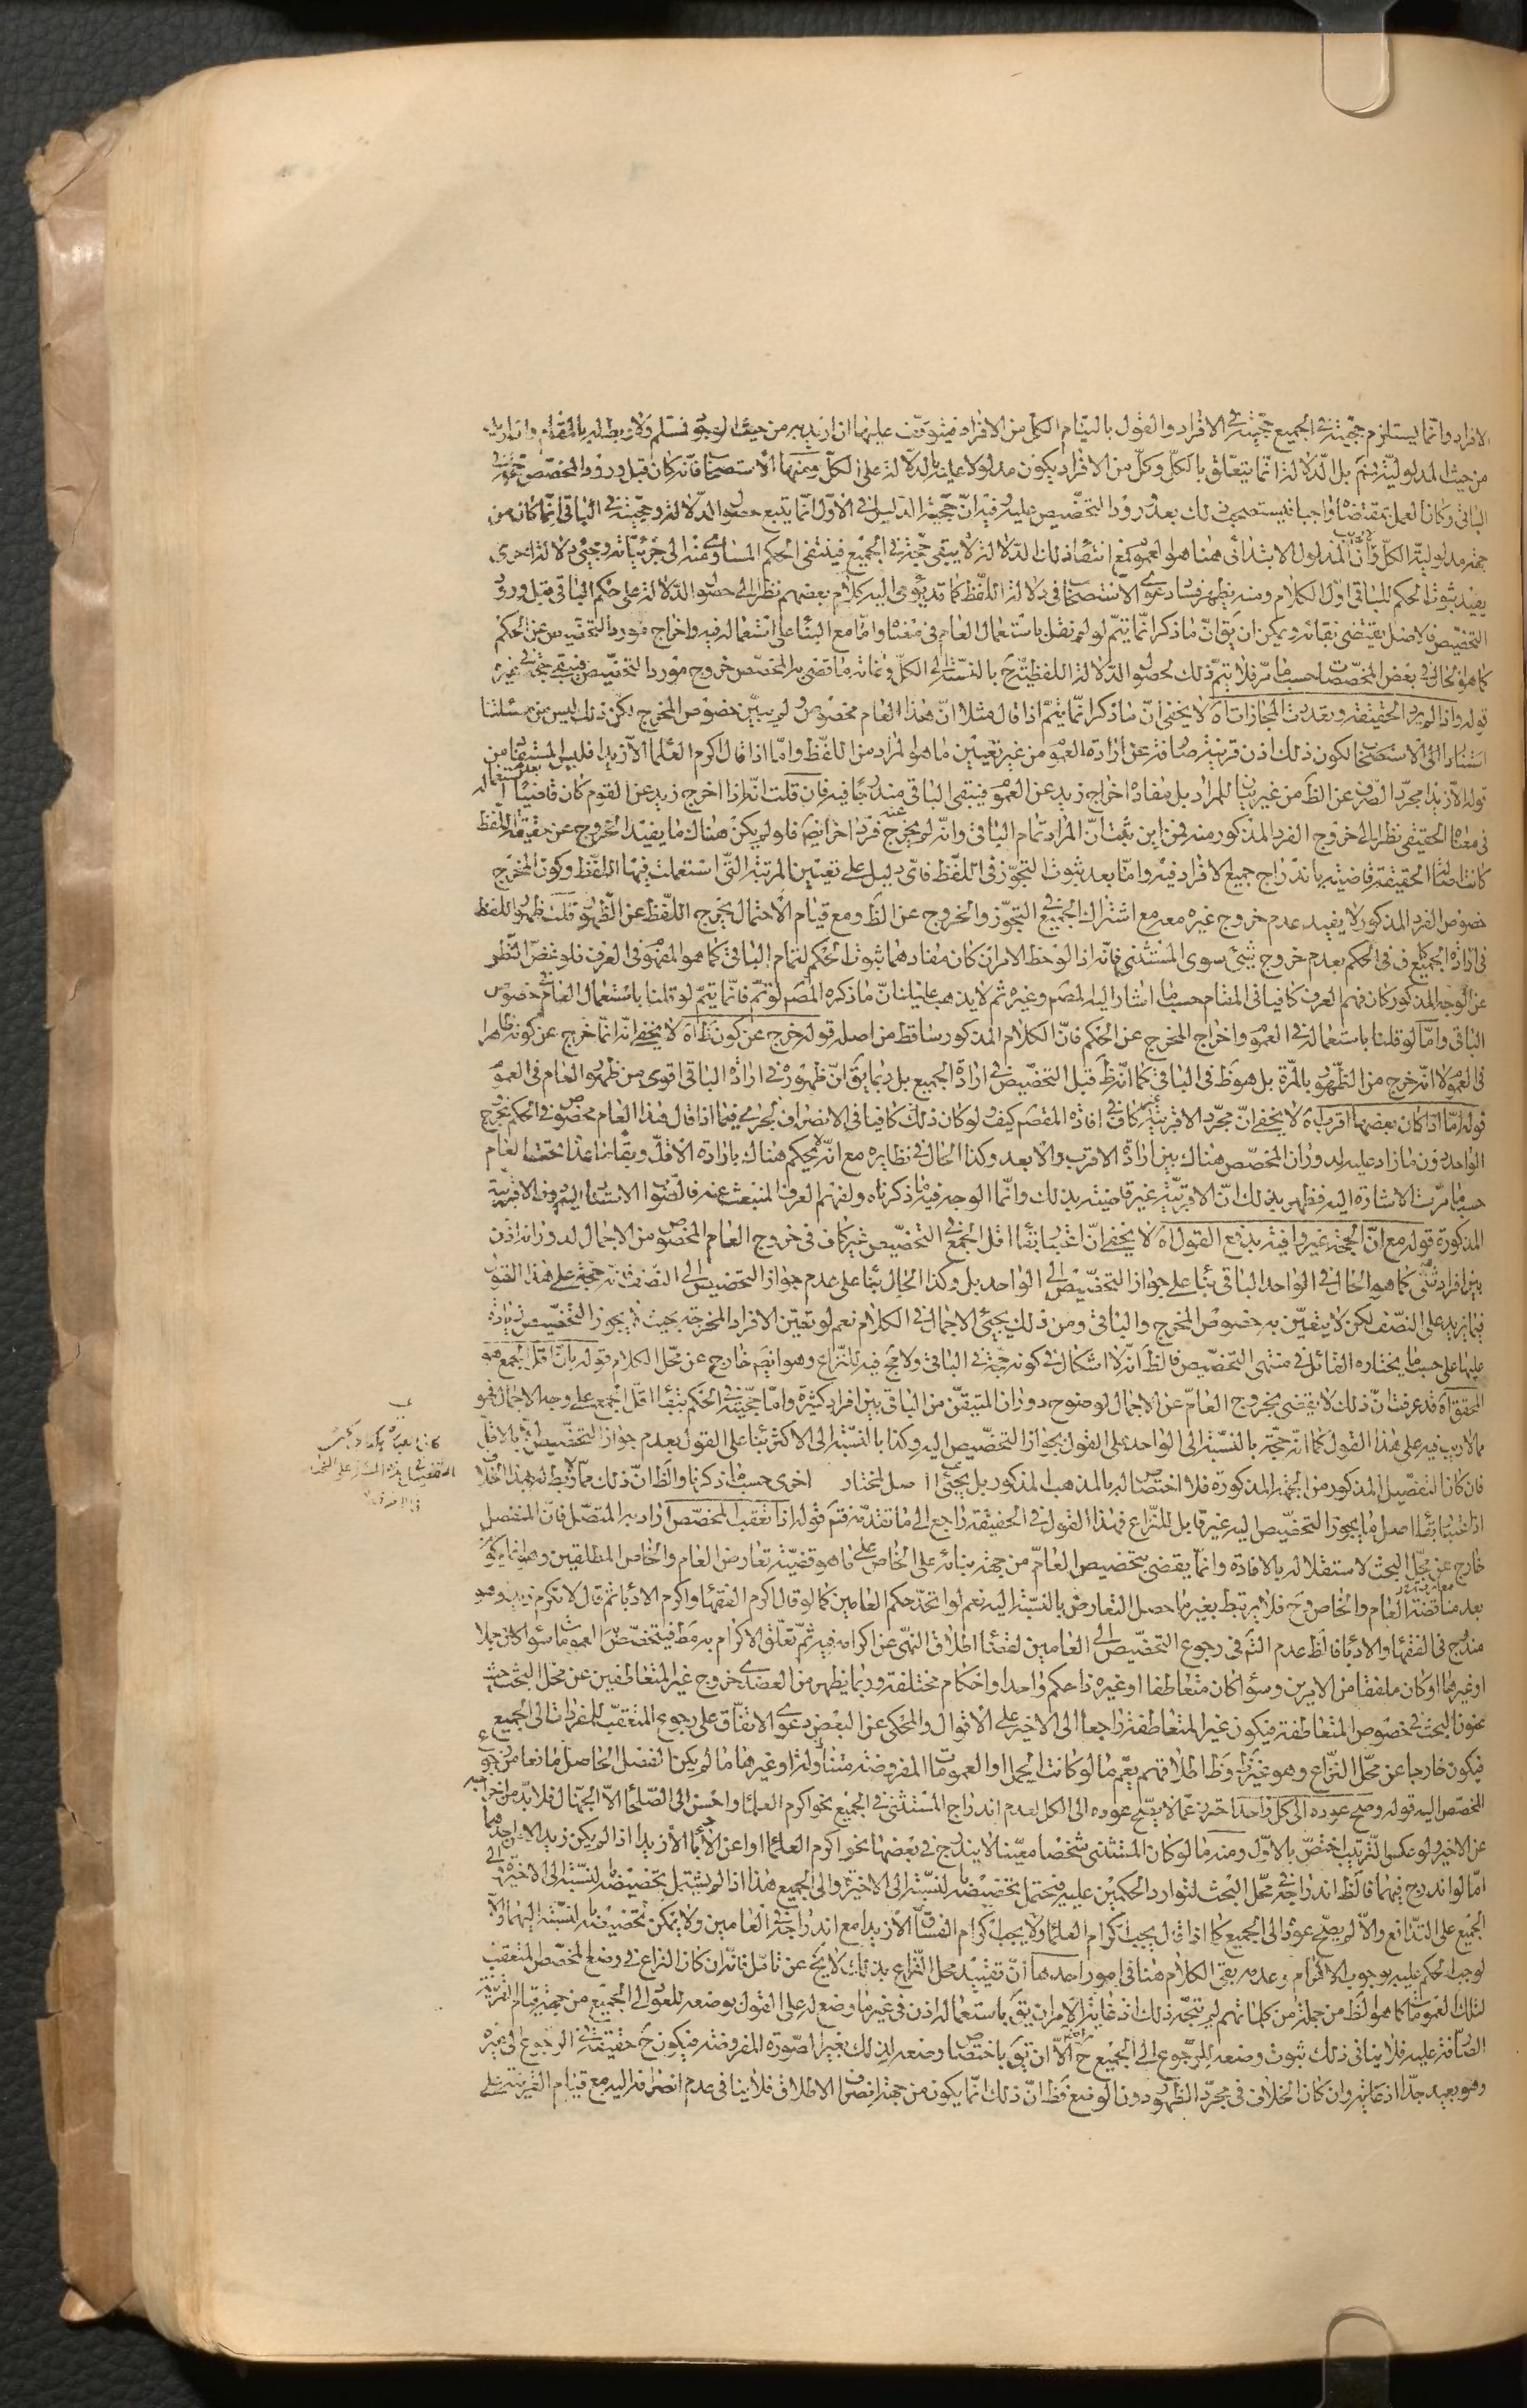 الافراد وانما يستلزم حجيته في الجميع حجيته في الافراد والقول بالتيام الكل من الافراد فيتوقف عليها ان اريد به من حيث الوجود فمسلم ولا ربط له بالمقام وان اريد به
من حيث المدلولية فمم بل الدلالة انما يتعلق بالكل وكل من الافراد يكون مدلولا عليه بالدلالة على الكل ومنها الاستصحاب فانه كان قبل ورود المخصص حجة في
الباقي وكان العمل بمقتضاه واجبا فيستصحب ذلك بعد ورود التخصيص عليه وفيه ان حجية الدليل في الاول انما يتبع حصول الدلالة وحجيته في الباقي انما كان من
جهة مدلولية الكل وان المدلول الابتدائي هنا هو العموم فمع انتفاء ذلك الدلالة لا يبقى حجة في الجميع فينتفي الحكم المساوي منه الى جزئياته ومجيئ دلالة اخرى
يفيد ثبوت الحكم للباقي اول الكلام ومنه يظهر فساد دعوى الاستصحاب في دلالة اللفظ كما قد يؤمي اليه كلام بعضهم نظرا الى حصول الدلالة على حكم الباقي قبل ورود
التخصيص فالاصل يقتضي بقائه ويمكن ان يق ان ما ذكر انما يتم لو لم نقل باستعمال العام في معناه واما مع البناء على استعماله فيه واخراج مورد التخصيص عن الحكم
كما هو الحال في بعض المخصصات حسب ما مر فلا يتم ذلك لحصول الدلالة اللفظية ح بالنسبة الى الكل وغاية ما قضى به المخصص خروج مورد التخصيص فيبقى حجة في غيره
قوله واذا لم يرد الحقيقة وتعددت المجازات اه لا يخفى ان ما ذكر انما يتم اذا قال مثلا ان هذا العام مخصوص ولم يبين خصوص المخرج لكن ذلك ليس من مسئلتنا
استنادا الى الاستصحاب لكون ذلك اذن قرينة صارفة عن ارادة العموم من غير تعيين ما هو المراد من اللفظ واما اذا قال اكرم العلماء الا زيدا فليس المستفاد من
قوله الا زيدا مجرد الصرف عن الظ من غير بيان للمراد بل مفاده اخراج زيد عن العموم فيبقى الباقي مندرجا فيه فان قلت انه اذا اخرج زيد عن القوم كان قاضيا بعدم استعماله
في معناه الحقيقي نظرا الى خروج الفرد المذكور منه فمن اين يثبت ان المراد تمام الباقي وانه لم يخرج عنه فرد اخر ايضا فلو لم يكن هناك ما يفيد الخروج عن حقيقة اللفظ
كانت اصالة الحقيقة قاضية باندراج جميع الافراد فيه واما بعد ثبوت التجوز في اللفظ فاي دليل على تعيين المرتبة التي استعملت فيها اللفظ وكون المخرج
خصوص الفرد المذكور لا يفيد عدم خروج غيره معه مع اشتراك الجميع في التجوز والخروج عن الظ ومع قيام الاحتمال يخرج اللفظ عن الظهور قلت ظهور اللفظ
في ارادة الجميع كاف في الحكم بعدم خروج شيء سوى المستثنى فانه اذا لوحظ الامران كان مفادهما ثبوت الحكم لتمام الباقي كما هو المفهوم في العرف فلو غض النظر
عن الوجه المذكور كان فهم العرف كافيا في المقام حسب ما اشار اليه المصم وغيره ثم لا يذهب عليك ان ما ذكره المصم لو تم فانما يتم لو قلنا باستعمال العام في خصوص
الباقي واما لو قلنا باستعماله في العموم واخراج المخرج عن الحكم فان الكلام المذكور ساقط من اصله قوله خرج عن كونه ظ اه لا يخفى انه انما خرج عن كونه ظاهرا
في العموم لا انه خرج من الظهور بالمرة بل هو ظ في الباقي كما انه ظ قبل التخصيص في ارادة الجميع بل ربما يق ان ظهوره في ارادة الباقي اقوى من ظهور العام في العموم
قوله اما اذا كان بعضها اقرب اه لا يخفى ان مجرد الاقربية غير كاف في افادة المقصم كيف ولو كان ذلك كافيا في الانصراف لجرى فيما اذا قال هذا العام مخصوص في الحكم بخروج
الواحد دون ما زاد عليه لدوران المخصص هناك بين ارادة الاقرب والابعد وكذا الحال في نظايره مع انه لا يحكم هناك بارادة الاقل وبقاء ما عداه تحت العام
حسب ما مرت الاشارة اليه فظهر بذلك ان الاقربية غير قاضية بذلك وانما الوجه فيه ما ذكرناه ولفهم العرف المنبعث عنه فالصواب الاستناد اليه دون الاقربية
المذكورة قوله مع ان الحجة غير وافية بدفع القول اه لا يخفى ان اعتبار بقاء اقل الجمع في التخصيص غير كاف في خروج العام المخصوص من الاجمال لدورانه اذن
بين افراد شتى كما هو الحال في الواحد الباقي بناء على جواز التخصيص الى الواحد بل وكذا الحال بناء على عدم جواز التخصيص الى النصف فانه حجة على هذا القول
فيما يزيد على النصف لكن لا يتعين به خصوص المخرج والباقي ومن ذلك يجيئ الاجمال في الكلام نعم لو تعين الافراد المخرجة بحيث لم يجوز التخصيص بزيادة
عليها على حسب ما يختاره القائل في منتهى التخصيص فالظ انه لا اشكال في كونه حجة في الباقي ولا مجح فيه للنزاع وهو ايضم خارج عن محل الكلام قوله بان اقل الجمع هو
المحقق اه قد عرفت ان ذلك لا يقضي بخروج العام عن الاجمال لوضوح دوران المتيقن من الباقي بين افراد كثيرة واما حجيته في الحكم ببقاء اقل الجمع على وجه الاجمال فهو
مما لا ريب فيه على هذا القول كما انه حجة بالنسبة الى الواحد على القول بجواز التخصيص اليه وكذا بالنسبة الى الاكثر بناء على القول بعدم جواز التخصيص الا بالاقل
فان كان التفصيل المذكور من الجهة المذكورة فلا اختصاص له بالمذهب المذكور بل يجيئ على اصل المختار اخرى حسب ما ذكرنا والظ ان ذلك مما لا ربط له بهذا الخلاف
اذ اعتبار بقاء اصل ما يجوز التخصيص اليه غير قابل للنزاع فهذا القول في الحقيقة راجع الى ما تقدمه فتم قوله اذا تعقب المخصص اراد به المتصل فان المنفصل
خارج عن محل البحث لاستقلاله بالافادة وانما يقضي بتخصيص العام من جهة بنائه على الخاص على ما هو قضية تعارض العام والخاص المطلقين وهو انما يكون
بعد مناقضة العام والخاص وح فلا يرتبط بغير ما حصل التعارض بالنسبة اليه نعم لو اتحد حكم العامين كما لو قال اكرم الفقهاء واكرم الادباء ثم قال لا تكرم زيدا وهو
مندرج في الفقهاء والادباء فالظ عدم الثم في رجوع التخصيص الى العامين لقضاء اطلاق النهي عن اكرامه فيه ثم تعلق الاكرام به مط فيتخصص العمومات سواء كان جملا
او غيرها او كان ملفقا من الامرين وسواء كان متعاطفا او غيره ذا حكم واحد او احكام مختلفة وربما يظهر من العضدي خروج غير المتعاطفين عن محل البحث حيث
عنون البحث في خصوص المتعاطفة فيكون غير المتعاطفة راجعا الى الاخير على الاقوال والمحكى عن البعض دعوى الاتفاق على رجوع المتعقب للمفردات الى الجميع
فيكون خارجا عن محل النزاع وهو غير وظ اطلاقهم يعم ما لو كانت الجمل او العمومات المفروضة متناولة او غيرها ما لم يكن الفصل الحاصل مانعا من رجوع
المخصص اليه قوله وصح عوده الى كل واحد احترز عما لا يصح عوده الى الكل لعدم اندراج المستثنى في الجميع نحو اكرم العلماء واحسن الى الصلحاء الا الجهال فلا بد من اخراجه
عن الاخير ولو عكس الترتيب اختص بالاول ومنه ما لو كان المستثنى شخصا معينا لا يندرج في بعضها نحو اكرم العلماء او اعن الادباء الا زيدا اذا لم يكن زيد الا في احدهما
اما لو اندرج فيهما فالظ اندراجه في محل البحث لتوارد الحكمين عليه فيحتمل تخصيصه بالنسبة الى الاخيرة والى الجميع هذا اذا لم يشتمل تخصيصه بالنسبة الى الاخيرة الى
الجميع على التدافع والا لم يصح عوده الى الجميع كما اذا قال يجب اكرام العلماء ولا يجب اكرام الفساق الا زيدا مع اندراجه في العامين ولا يمكن تخصيصه بالنسبة اليهما والا
لوجب الحكم عليه بوجوب الاكرام وعدمه بقي الكلام هنا في امور احدها ان تقييد محل النزاع بذلك لا يخ عن تامل فانه ان كان النزاع في وضع المخصص المتعقب
لتلك العمومات كما هو الظ من جملة من كلماتهم لم يتجه ذلك اذ غاية الامر ان يق باستعماله اذن في غير ما وضع له على القول بوضعه للعود الى الجميع من جهة قيام القرينة
الصارفة عليه فلا ينافي ذلك ثبوت وضعه للرجوع الى الجميع ح الا ان يق باختصاص وضعه لذلك بغير الصورة المفروضة فيكون ح حقيقة في الرجوع الى غيره
وهو بعيد جدا وان كان الخلاف في مجرد الظهور دون الوضع فظ ان ذلك انما يكون من جهة انصراف الاطلاق فلا ينافي عدم انصرافه اليه مع قيام القرينة على